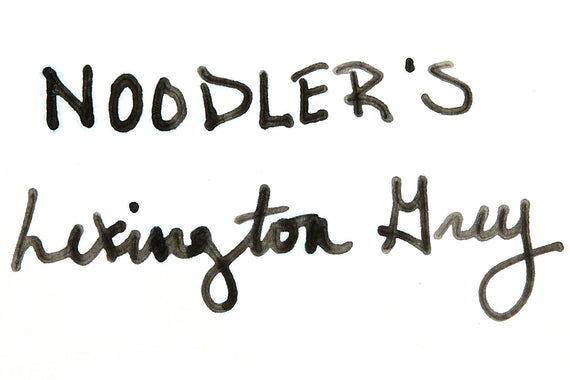 NOODLER'S
Lexington Grey